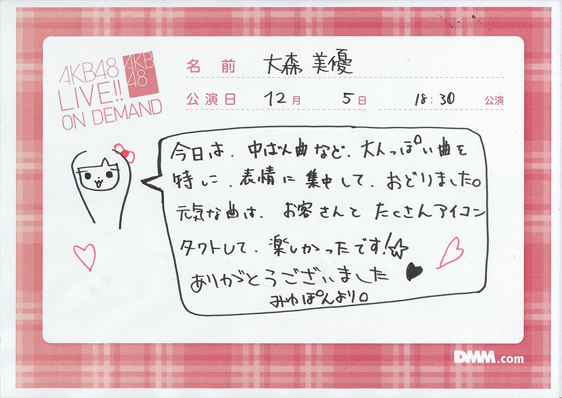 AKB48
LIVE!!
ON DEMAND
AKB
48
名前 大森美優
公演日 12月 5日 18:30 公演
今日は、中ばん曲など、大人っぽい曲を
特に、表情に集中して、おどりました。
元気な曲は、お客さんと たくさんアイコン
タクトして、楽しかったです!☆
ありがとうございました
みゆぽんより。
DMM.com